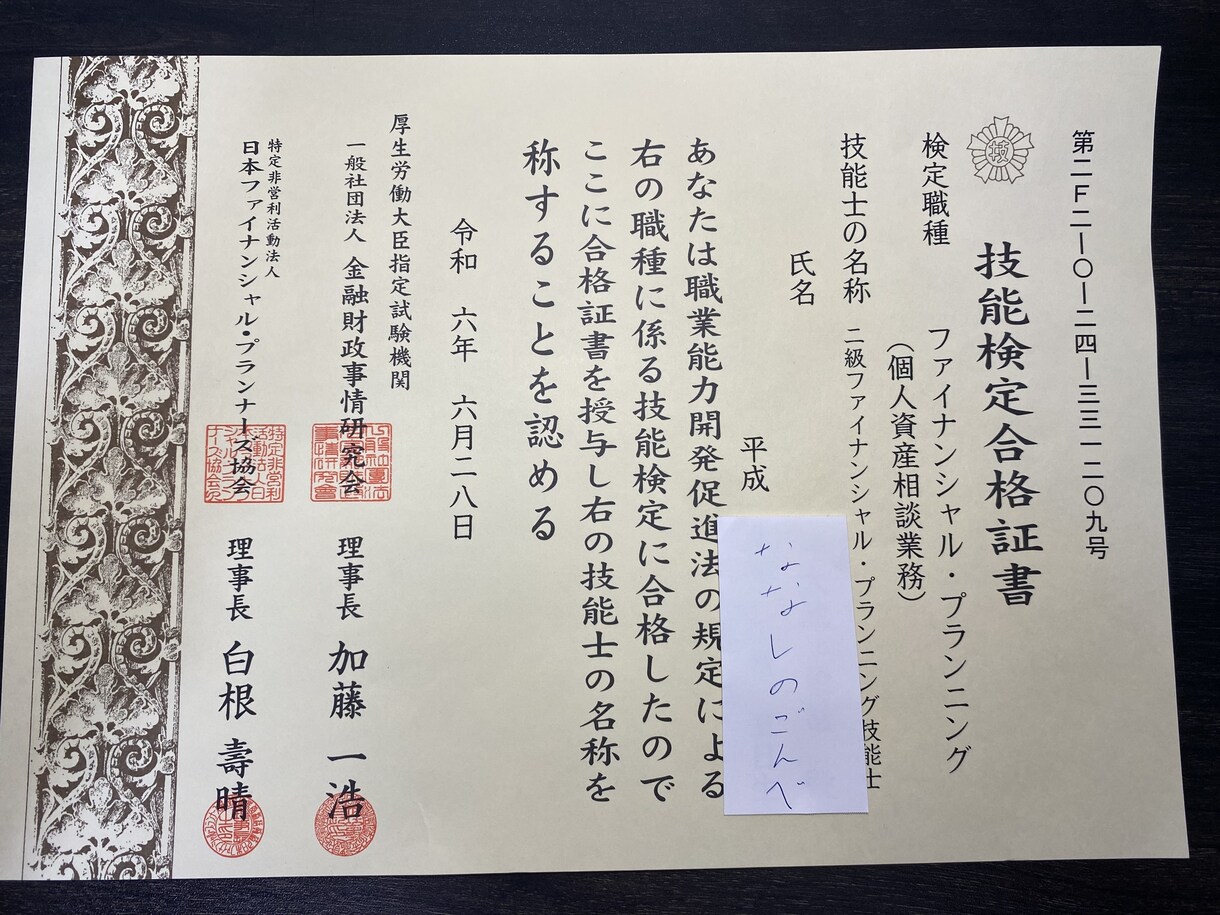 第二F二ー〇ー二四ー三三一二〇九号
技
技能検定合格証書
検定職種 ファイナンシャル・プランニング
(個人資産相談業務)
技能士の名称 二級ファイナンシャル・プランニング技能士
氏名
ななしのごんべ
平成
あなたは職業能力開発促進法の規定による
右の職種に係る技能検定に合格したので
ここに合格証書を授与し右の技能士の名称を
称することを認める
令和 六年 六月二八日
厚生労働大臣指定試験機関
一般社団法人 金融財政事情研究会 理事長 加藤 一浩
特定非営利活動法人
日本ファイナンシャル・プランナーズ協会 理事長 白根 壽晴